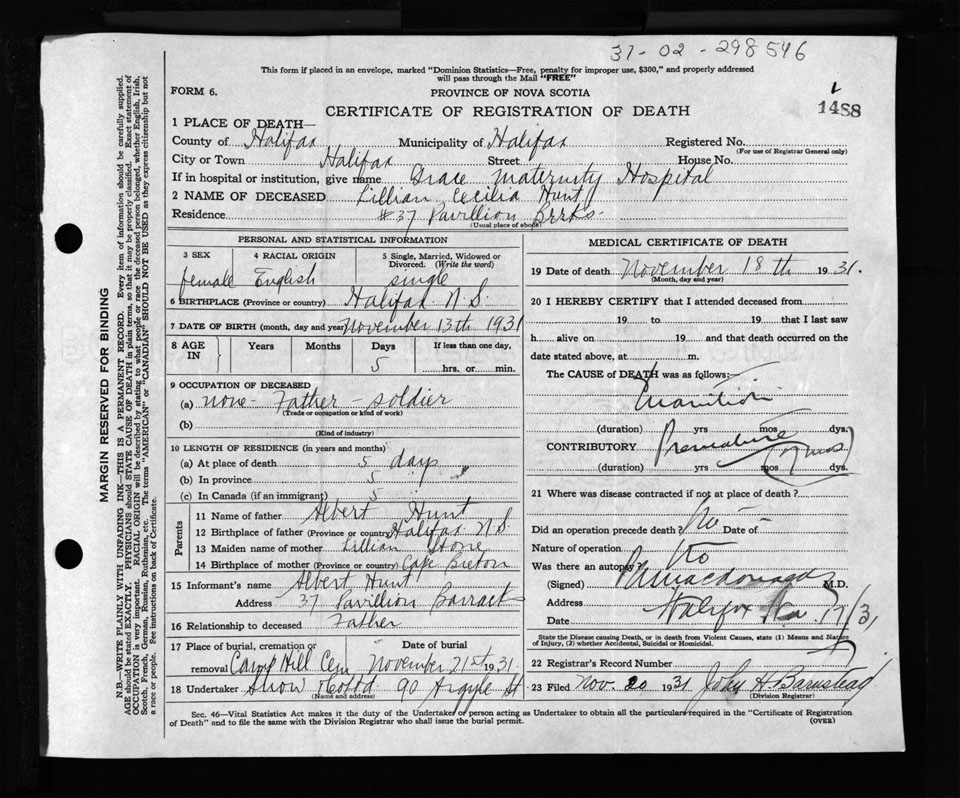 31-02-298546
This form if placed in an envelope, marked "Dominion Statistics—Free, penalty for improper use, $300," and properly addressed
will pass through the Mail "FREE"
FORM 6.
PROVINCE OF NOVA SCOTIA
CERTIFICATE OF REGISTRATION OF DEATH
1488
1 PLACE OF DEATH—
County of Halifax Municipality of Halifax Registered No.
(For use of Registrar General only)
City or Town Halifax Street House No.
If in hospital or institution, give name Grace Maternity Hospital
2 NAME OF DECEASED Lillian Cecilia Hunt
Residence #37 Pavillion Brrks.
(Usual place of abode)
PERSONAL AND STATISTICAL INFORMATION
3 SEX 4 RACIAL ORIGIN 5 Single, Married, Widowed or
Divorced. (Write the word)
female English single
6 BIRTHPLACE (Province or country) Halifax N.S.
7 DATE OF BIRTH (month, day and year) November 13th 1931
8 AGE IN Years Months Days If less than one day,
5 hrs. or min.
9 OCCUPATION OF DECEASED
(a) none - Father - soldier
(Trade or occupation or kind of work)
(b)
(Kind of industry)
10 LENGTH OF RESIDENCE (in years and months)
(a) At place of death 5 days
(b) In province 5
(c) In Canada (if an immigrant) 5
Parents
11 Name of father Albert Hunt
12 Birthplace of father (Province or country) Halifax N.S.
13 Maiden name of mother Lillian Stone
14 Birthplace of mother (Province or country) Cape Breton
15 Informant's name Albert Hunt
Address 37 Pavillion Barracks
16 Relationship to deceased Father
17 Place of burial, cremation or Date of burial
removal Camp Hill Cem November 21st 1931
18 Undertaker Snow Co Ltd 90 Argyle St
(Name and address)
MEDICAL CERTIFICATE OF DEATH
19 Date of death November 18th 1931.
(Month, day and year)
20 I HEREBY CERTIFY that I attended deceased from
19 to 19 that I last saw
h alive on 19 and that death occurred on the
date stated above, at m.
The CAUSE of DEATH was as follows:—
Inanition
(duration) yrs mos dys.
CONTRIBUTORY Premature
(duration) yrs mos dys.
21 Where was disease contracted if not at place of death?
Did an operation precede death? No Date of
Nature of operation
Was there an autopsy? No
(Signed) Macdonald M.D.
Address Halifax
Date
State the Disease causing Death, or in death from Violent Causes, state (1) Means and Nature
of Injury, (2) whether Accidental, Suicidal or Homicidal.
22 Registrar's Record Number
23 Filed Nov. 20 1931 John H Barnstead
(Division Registrar)
Sec. 46—Vital Statistics Act makes it the duty of the Undertaker or person acting as Undertaker to obtain all the particulars required in the "Certificate of Registration
of Death" and to file the same with the Division Registrar who shall issue the burial permit.
(OVER)
MARGIN RESERVED FOR BINDING
N.B.—WRITE PLAINLY WITH UNFADING INK—THIS IS A PERMANENT RECORD. Every item of information should be carefully supplied.
AGE should be stated EXACTLY. PHYSICIANS should STATE CAUSE OF DEATH in plain terms, so that it may be properly classified. Exact statement of
OCCUPATION is very important. RACIAL ORIGIN will be described by stating to what people or race the deceased person belonged, whether English, Irish,
Scotch, French, German, Russian, Ruthenian, etc. The terms "AMERICAN" or "CANADIAN" SHOULD NOT BE USED as they express citizenship but not
a race or people. See instructions on back of Certificate.